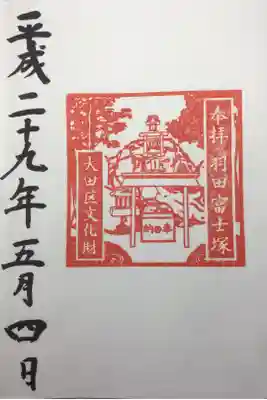 奉拝 羽田富士塚
奉納
大田区文化財
平成二十九年五月四日